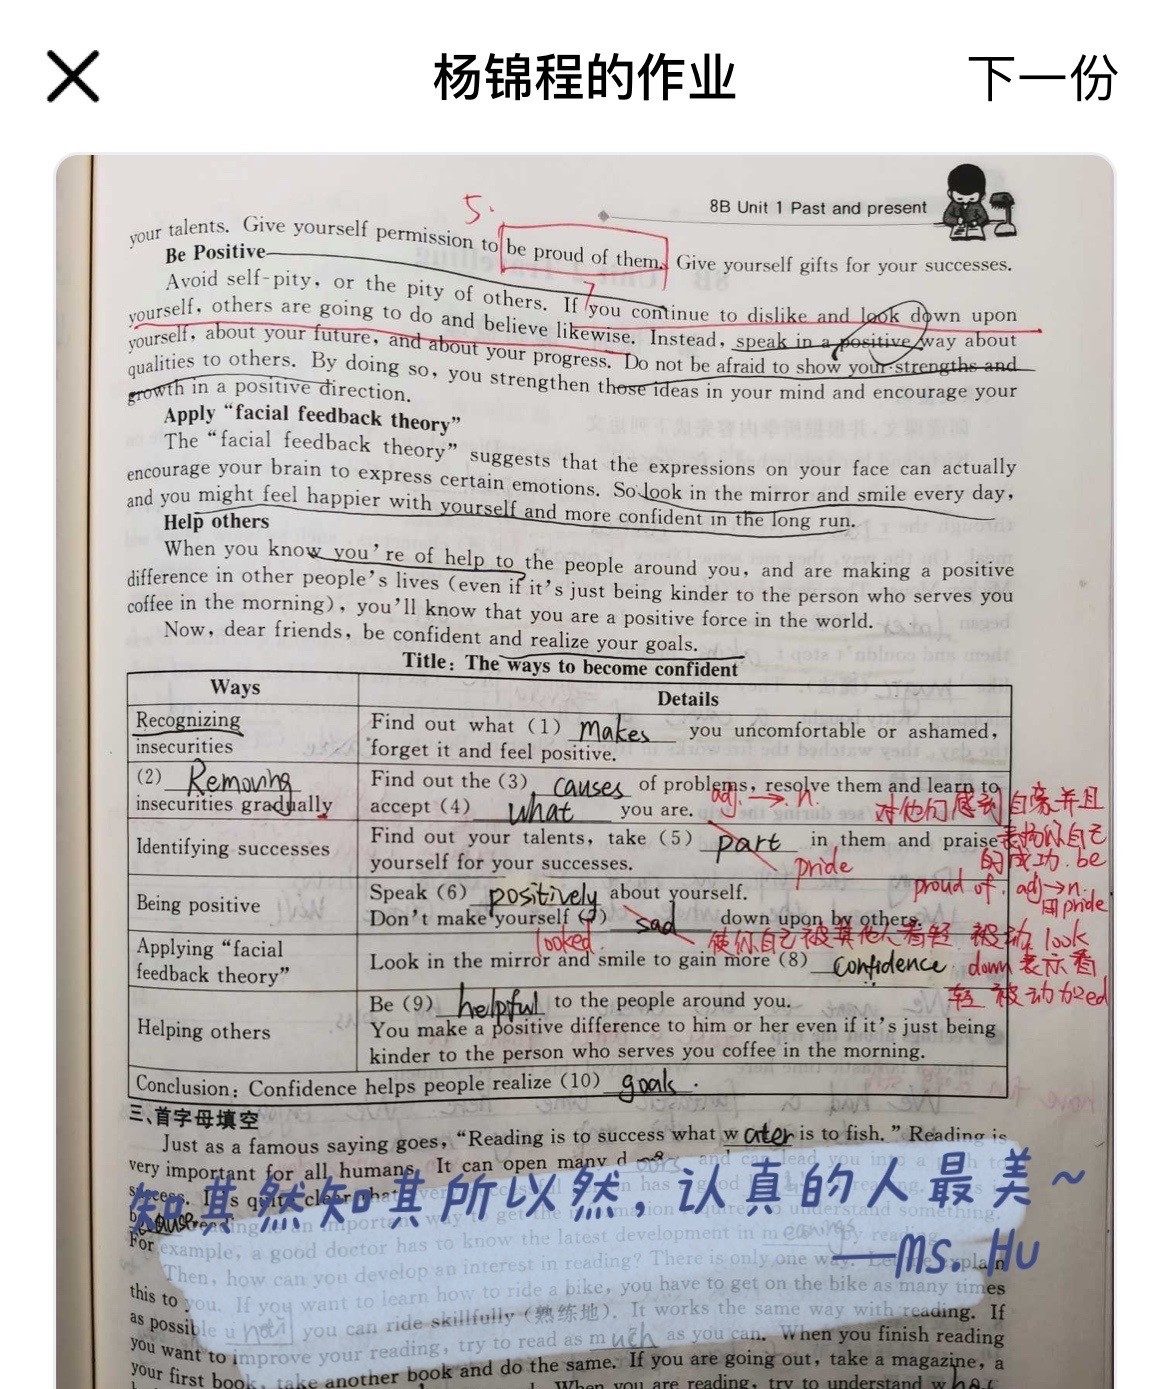 杨锦程的作业
下一份
8B Unit 1 Past and present
5.
your talents. Give yourself permission to be proud of them. Give yourself gifts for your successes.
Be Positive
7
Avoid self-pity, or the pity of others. If you continue to dislike and look down upon
yourself, others are going to do and believe likewise. Instead, speak in a positive way about
yourself, about your future, and about your progress. Do not be afraid to show your strengths and
qualities to others. By doing so, you strengthen those ideas in your mind and encourage your
growth in a positive direction.
Apply “facial feedback theory”
The “facial feedback theory” suggests that the expressions on your face can actually
encourage your brain to express certain emotions. So look in the mirror and smile every day,
and you might feel happier with yourself and more confident in the long run.
Help others
When you know you’re of help to the people around you, and are making a positive
difference in other people’s lives (even if it’s just being kinder to the person who serves you
coffee in the morning), you’ll know that you are a positive force in the world.
Now, dear friends, be confident and realize your goals.
Title: The ways to become confident
Ways
Details
Recognizing
insecurities
Find out what (1) makes you uncomfortable or ashamed,
forget it and feel positive.
(2) Removing
insecurities gradually
Find out the (3) causes of problems, resolve them and learn to
accept (4) what you are.
adj. → n.
对他们感到自豪并且
Identifying successes
Find out your talents, take (5) part in them and praise
yourself for your successes.
pride
表扬你自己
的成功. be
proud of. adj→n.
用pride
Being positive
Speak (6) positively about yourself.
Don’t make yourself (7) sad down upon by others.
looked
使你自己被其他人看轻 被动. look
down 表示看
轻 被动加ed
Applying “facial
feedback theory”
Look in the mirror and smile to gain more (8) confidence.
Helping others
Be (9) helpful to the people around you.
You make a positive difference to him or her even if it’s just being
kinder to the person who serves you coffee in the morning.
Conclusion: Confidence helps people realize (10) goals.
三、首字母填空
Just as a famous saying goes, “Reading is to success what water is to fish.” Reading is
very important for all humans. It can open many d and can lead you into a
success. It’s quite clear that
知其然知其所以然，认真的人最美~
——Ms. Hu
For example, a good doctor has to know the latest development in m by
Then, how can you develop an interest in reading? There is only one way. explain
this to you. If you want to learn how to ride a bike, you have to get on the bike as many times
as possible u you can ride skillfully (熟练地). It works the same way with reading. If
you want to improve your reading, try to read as much as you can. When you finish reading
your first book, take another book and do the same. If you are going out, take a magazine, a
When you are reading, try to understand what